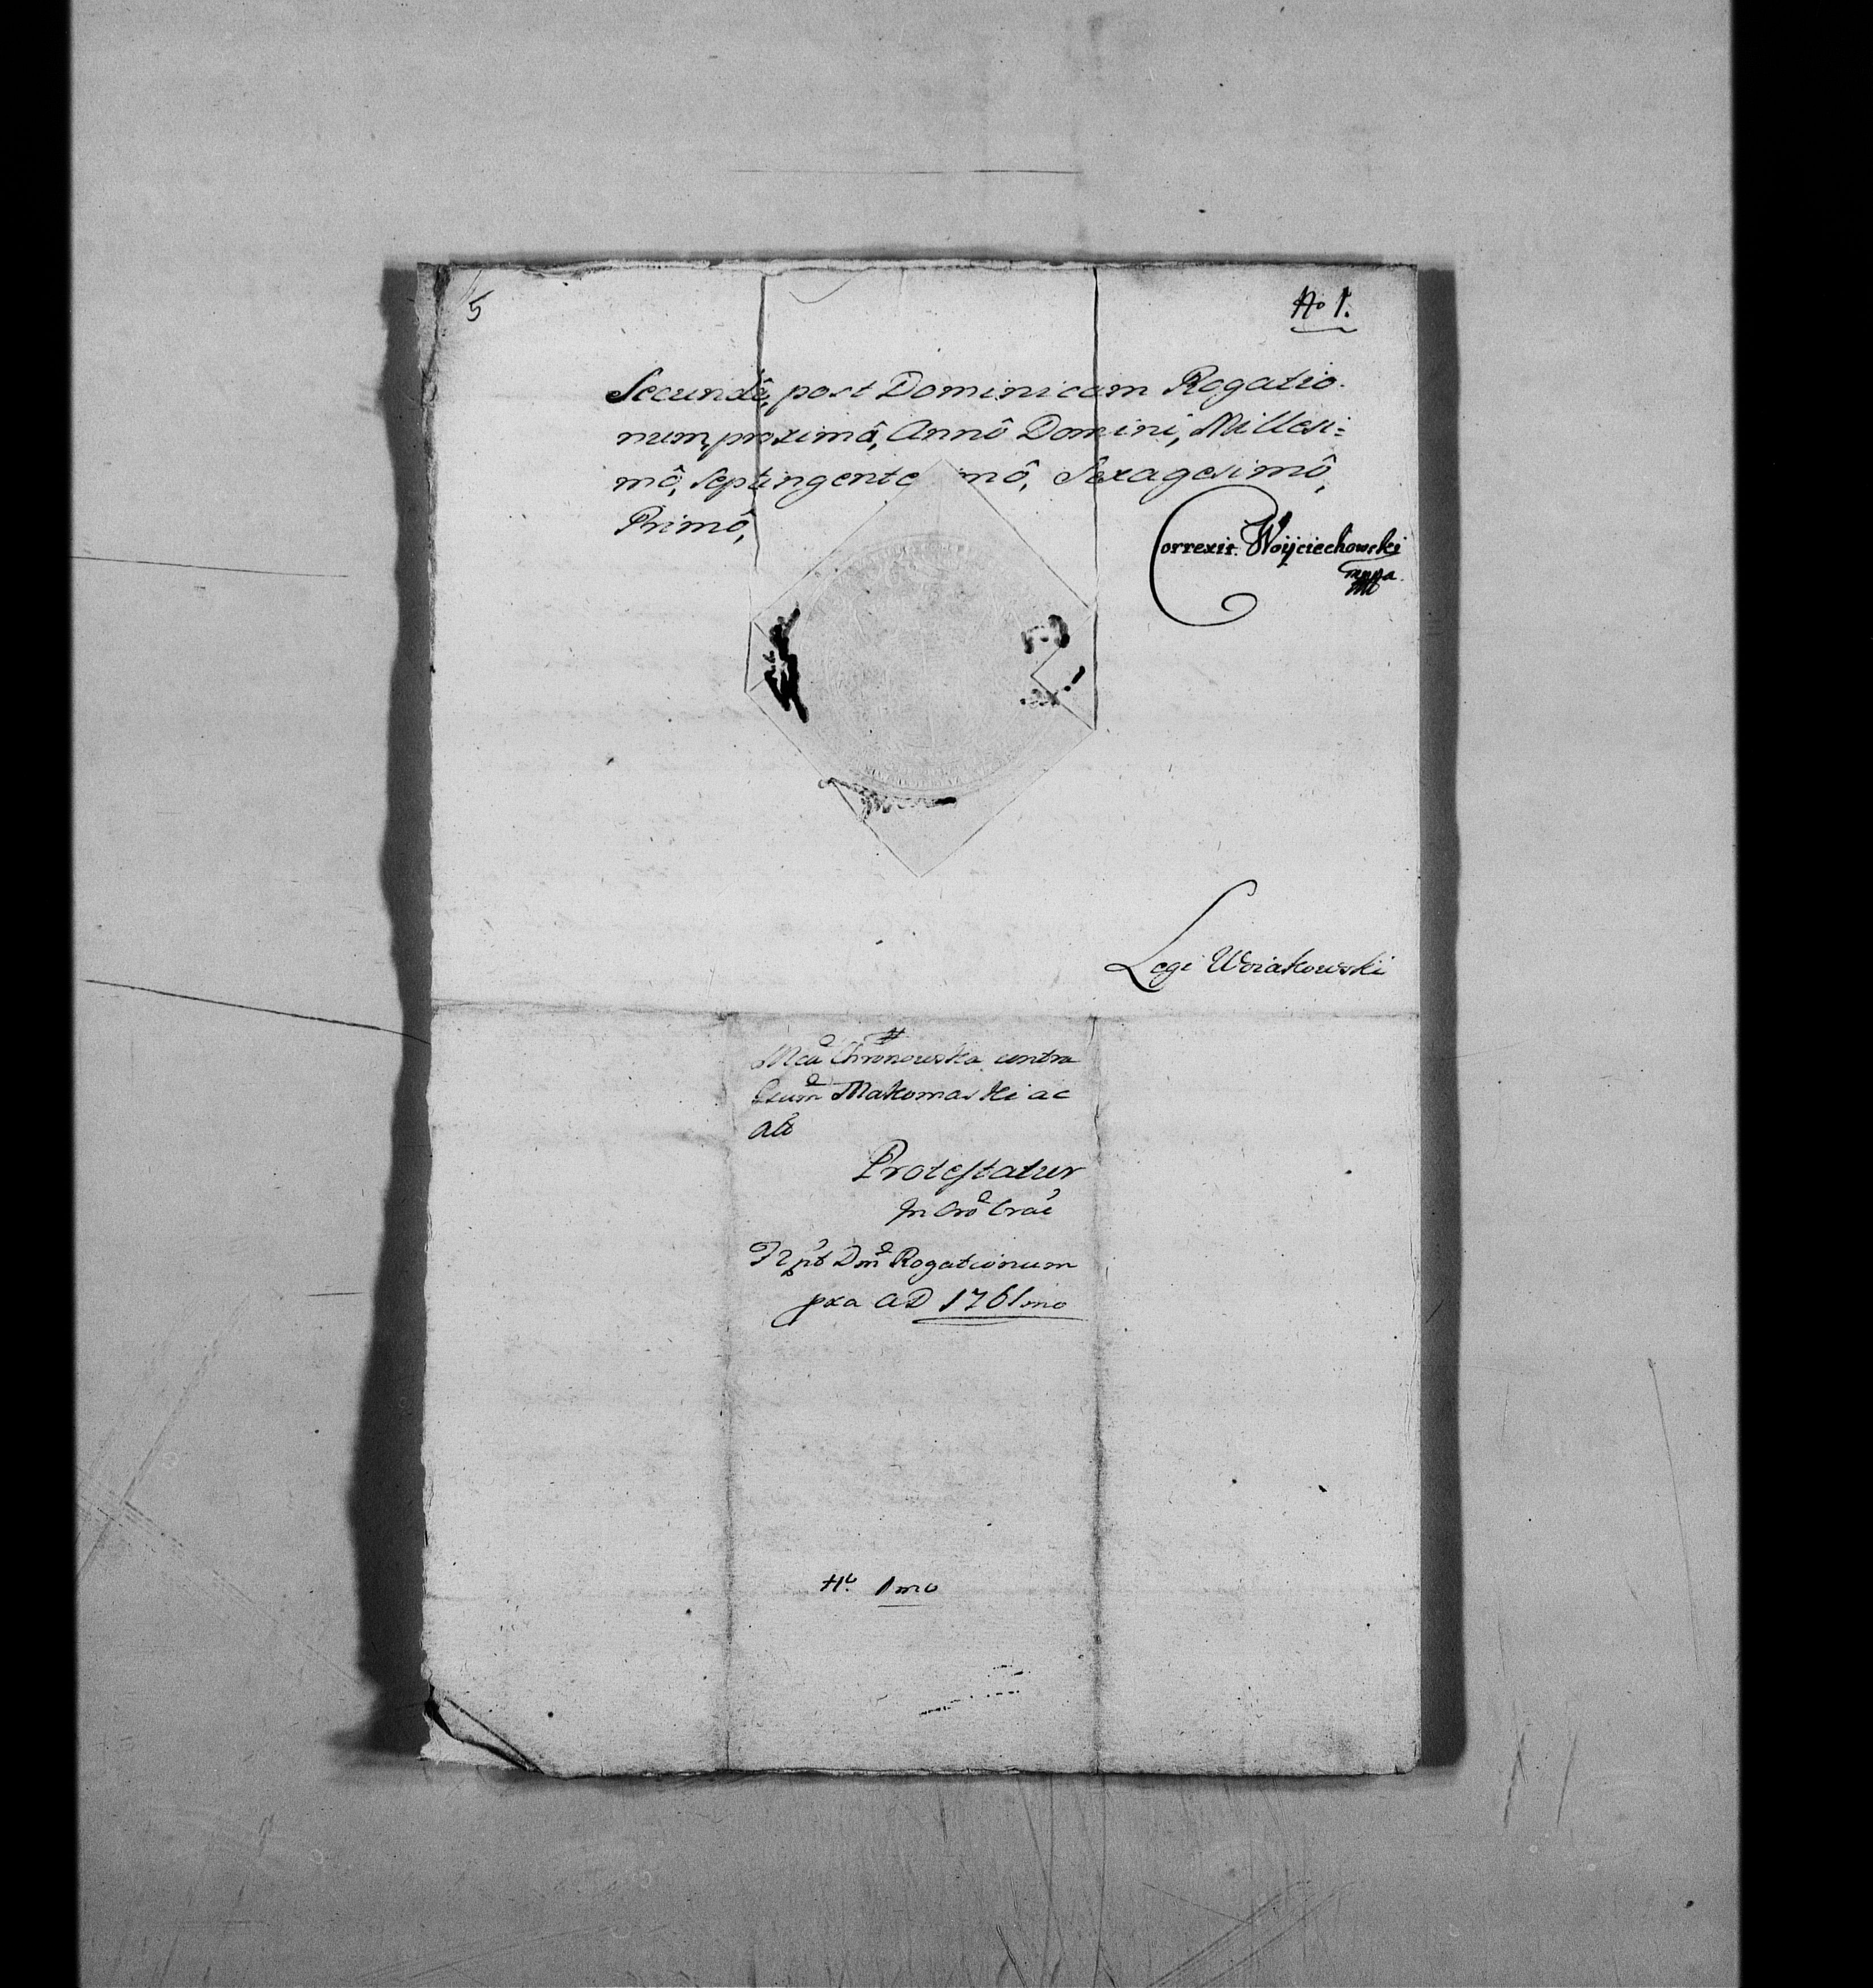 5
No 1.
Secundâ, post Dominicam Rogatio-
num, proximâ, Annô Domini, Millesi=
mô, Septingente mô, Sexagesimô,
Primô,
Correxit Woijciechowski
mppa
Legi Woiakowski
Mca Chronowska contra
Gsum Makomaski ac
alt
Protestatur
In Cro Crac
F 2 pt Dm Rogationum
pxa AD 1761mo
No. 1mo